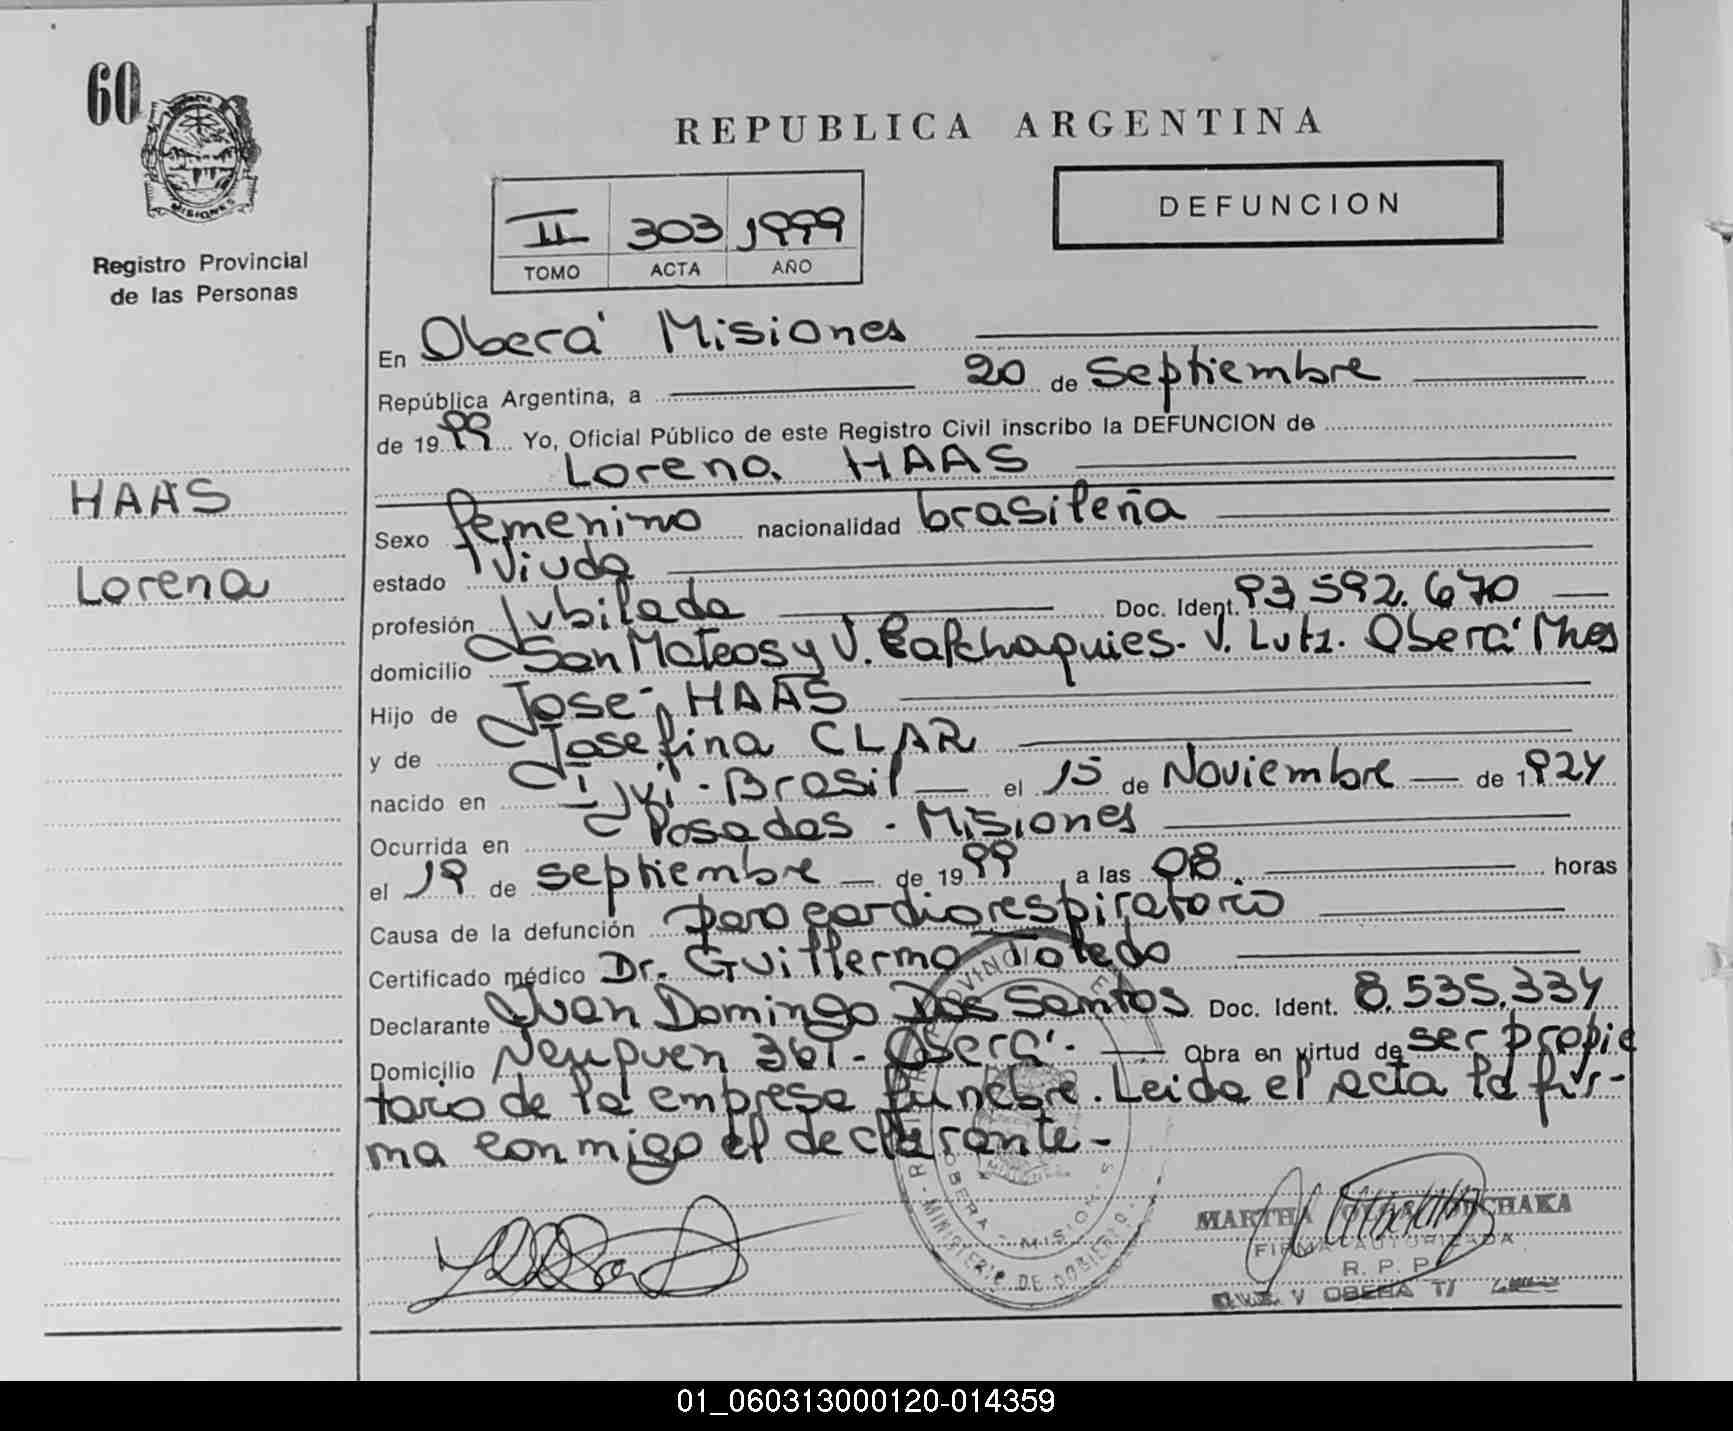 60
MISIONES
Registro Provincial
de las Personas
HAAS
Lorena
REPUBLICA ARGENTINA
II 303 1999
TOMO ACTA AÑO
DEFUNCION
En Oberá Misiones
República Argentina, a 20 de Septiembre
de 1999 Yo, Oficial Público de este Registro Civil inscribo la DEFUNCION de
Lorena HAAS
Sexo femenino nacionalidad brasileña
estado Viuda
profesión Jubilada Doc. Ident. 93 592. 670
domicilio San Mateos y V. Calchaquies. V. Lutz. Oberá Mnes
Hijo de José HAAS
y de Josefina CLAR
nacido en Ijuí - Brasil el 15 de Noviembre de 1924
Ocurrida en Posadas - Misiones
el 19 de septiembre de 1999 a las 08. horas
Causa de la defunción paro cardiorespiratorio
Certificado médico Dr. Guillermo Toledo
Declarante Juan Domingo Dos Santos Doc. Ident. 8.535.334
Domicilio Neuquen 361 - Oberá - Obra en virtud de ser propie
tario de la empresa fúnebre. Leida el acta la fir-
ma conmigo el declarante -
OBERA - MISIONES
MINISTERIO DE GOBIERNO
MARTHA
FIRMA AUTORIZADA
R. P. P.
OBERA
01_060313000120-014359